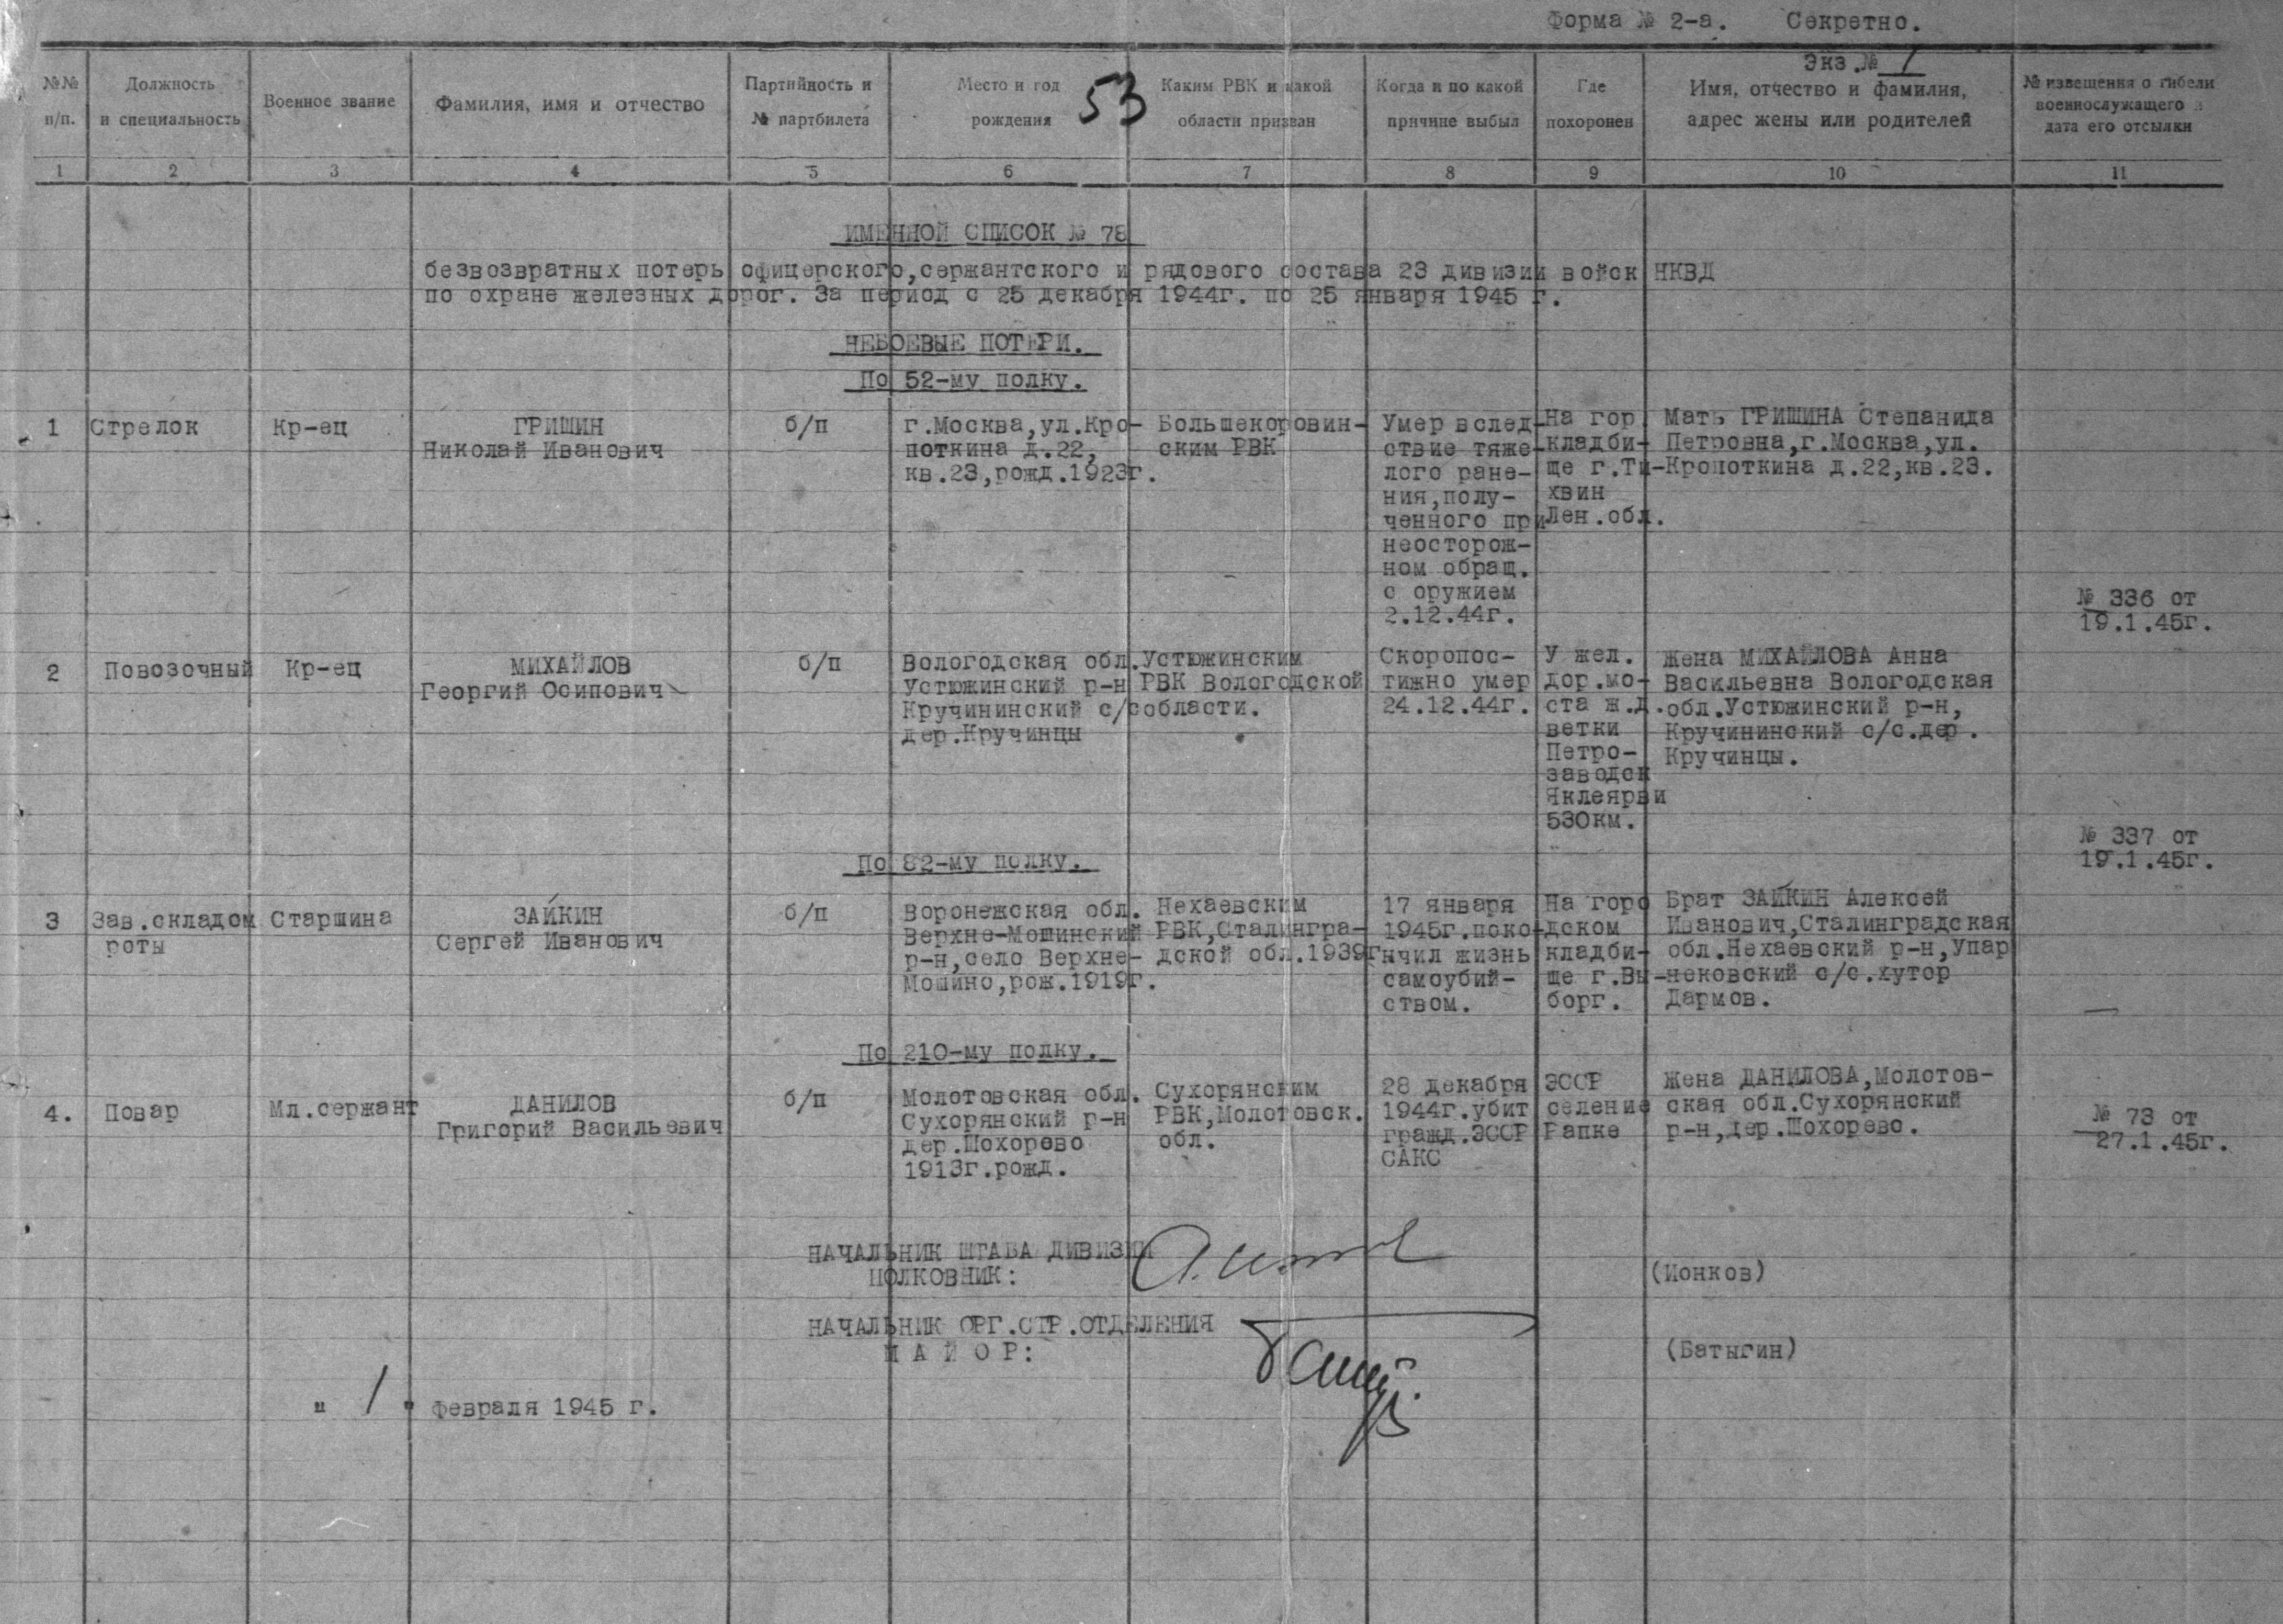 Форма № 2-а. Секретно.
Экз.№ 1
№№ п/п.
Должность и специальность
Военное звание
Фамилия, имя и отчество
Партийность и № партбилета
Место и год рождения
53
Каким РВК и какой области призван
Когда и по какой причине выбыл
Где похоронен
Имя, отчество и фамилия, адрес жены или родителей
№ извещения о гибели военнослужащего и дата его отсылки
1 2 3 4 5 6 7 8 9 10 11
ИМЕННОЙ СПИСОК № 78
безвозвратных потерь офицерского,сержантского и рядового состава 23 дивизии войск НКВД
по охране железных дорог. За период с 25 декабря 1944г. по 25 января 1945 г.
НЕБОЕВЫЕ ПОТЕРИ.
По 52-му полку.
1
Стрелок
Кр-ец
ГРИШИН
Николай Иванович
б/п
г.Москва,ул.Кро-
поткина д.22,
кв.23,рожд.1923г.
Большекоровин-
ским РВК
Умер вслед-
ствие тяже-
лого ране-
ния,полу-
ченного при
неосторож-
ном обращ.
с оружием
2.12.44г.
На гор.
кладби-
ще г.Ти-
хвин
Лен.обл.
Мать ГРИШИНА Степанида
Петровна,г.Москва,ул.
Кропоткина д.22,кв.23.
№ 336 от
19.1.45г.
2
Повозочный
Кр-ец
МИХАЙЛОВ
Георгий Осипович
б/п
Вологодская обл.
Устюжинский р-н
Кручининский с/с
дер.Кручинцы
Устюжинским
РВК Вологодской
области.
Скоропос-
тижно умер
24.12.44г.
У жел.
дор.мо-
ста ж.д.
ветки
Петро-
заводск
Яклеярви
530км.
Жена МИХАЙЛОВА Анна
Васильевна Вологодская
обл.Устюжинский р-н,
Кручининский с/с.дер.
Кручинцы.
№ 337 от
19.1.45г.
По 82-му полку.
3
Зав.складом
роты
Старшина
ЗАЙКИН
Сергей Иванович
б/п
Воронежская обл.
Верхне-Мошинский
р-н,село Верхне-
Мошино,рож.1919г.
Нехаевским
РВК,Сталингра-
дской обл.1939г.
17 января
1945г.поко-
нчил жизнь
самоубий-
ством.
На горо
дском
кладби-
ще г.Вы-
борг.
Брат ЗАЙКИН Алексей
Иванович,Сталинградская
обл.Нехаевский р-н,Упар
нековский с/с.хутор
Дармов.
—
По 210-му полку.
4.
Повар
Мл.сержант
ДАНИЛОВ
Григорий Васильевич
б/п
Молотовская обл.
Сухорянский р-н
дер.Шохорево
1913г.рожд.
Сухорянским
РВК,Молотовск.
обл.
28 декабря
1944г.убит
гражд.ЭССР
САКС
ЭССР
селение
Рапке
Жена ДАНИЛОВА,Молотов-
ская обл.Сухорянский
р-н,дер.Шохорево.
№ 73 от
27.1.45г.
НАЧАЛЬНИК ШТАБА ДИВИЗИИ
ПОЛКОВНИК:
(Ионков)
НАЧАЛЬНИК ОРГ.СТР.ОТДЕЛЕНИЯ
М А Й О Р:
(Батыгин)
" 1 " февраля 1945 г.